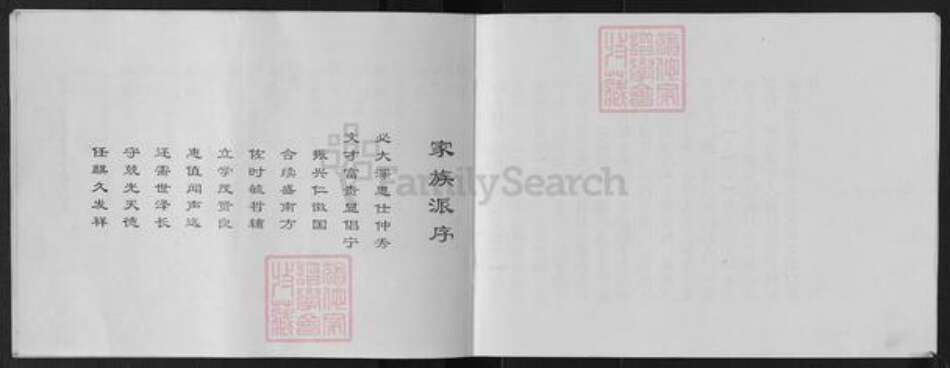 家族派序
必大泽惠仕仲秀
文才富贵显倡宁
振兴仁徽国
合续盛南方
佐时毓哲辅
立学茂贤良
惠值闻声远
还需世泽长
守兢光天德
任麒久发祥
FamilySearch